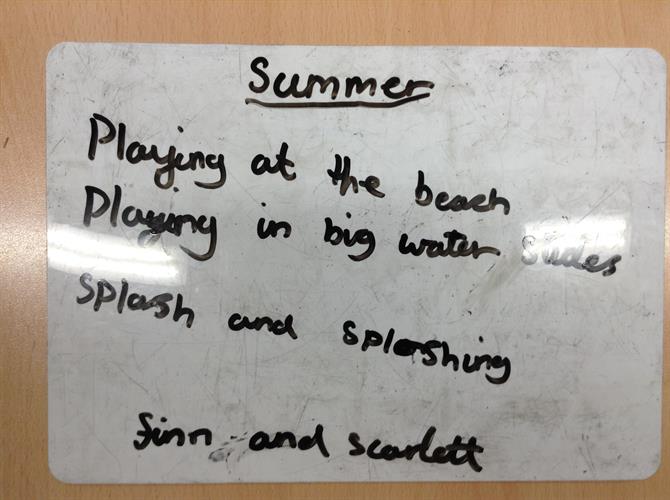 Summer
Playing at the beach
Playing in big water slides
Splash and splashing
finn and scarlett